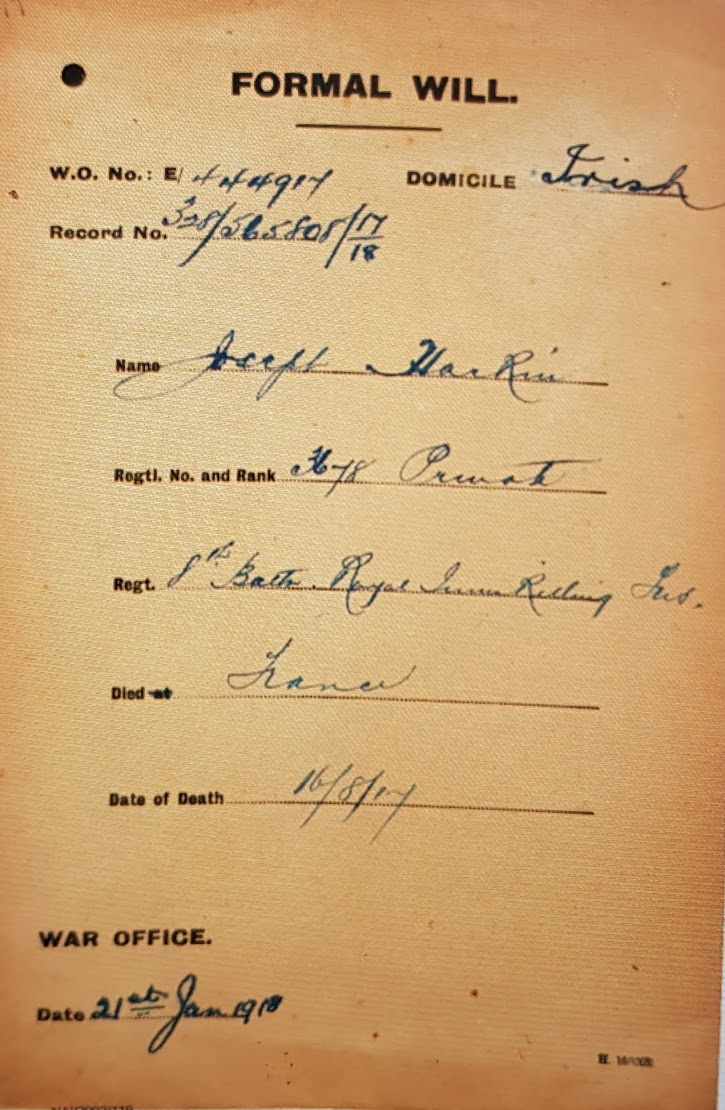 FORMAL WILL.
W.O. No.: E/ 444917 DOMICILE Irish
Record No. 328/565808/17/18
Name Joseph Harkin
Regtl. No. and Rank Private
Regt. 8th Battn Royal Innis Killing Fus.
Died at France
Date of Death 16/8/17
WAR OFFICE.
Date 21st Jan 1918